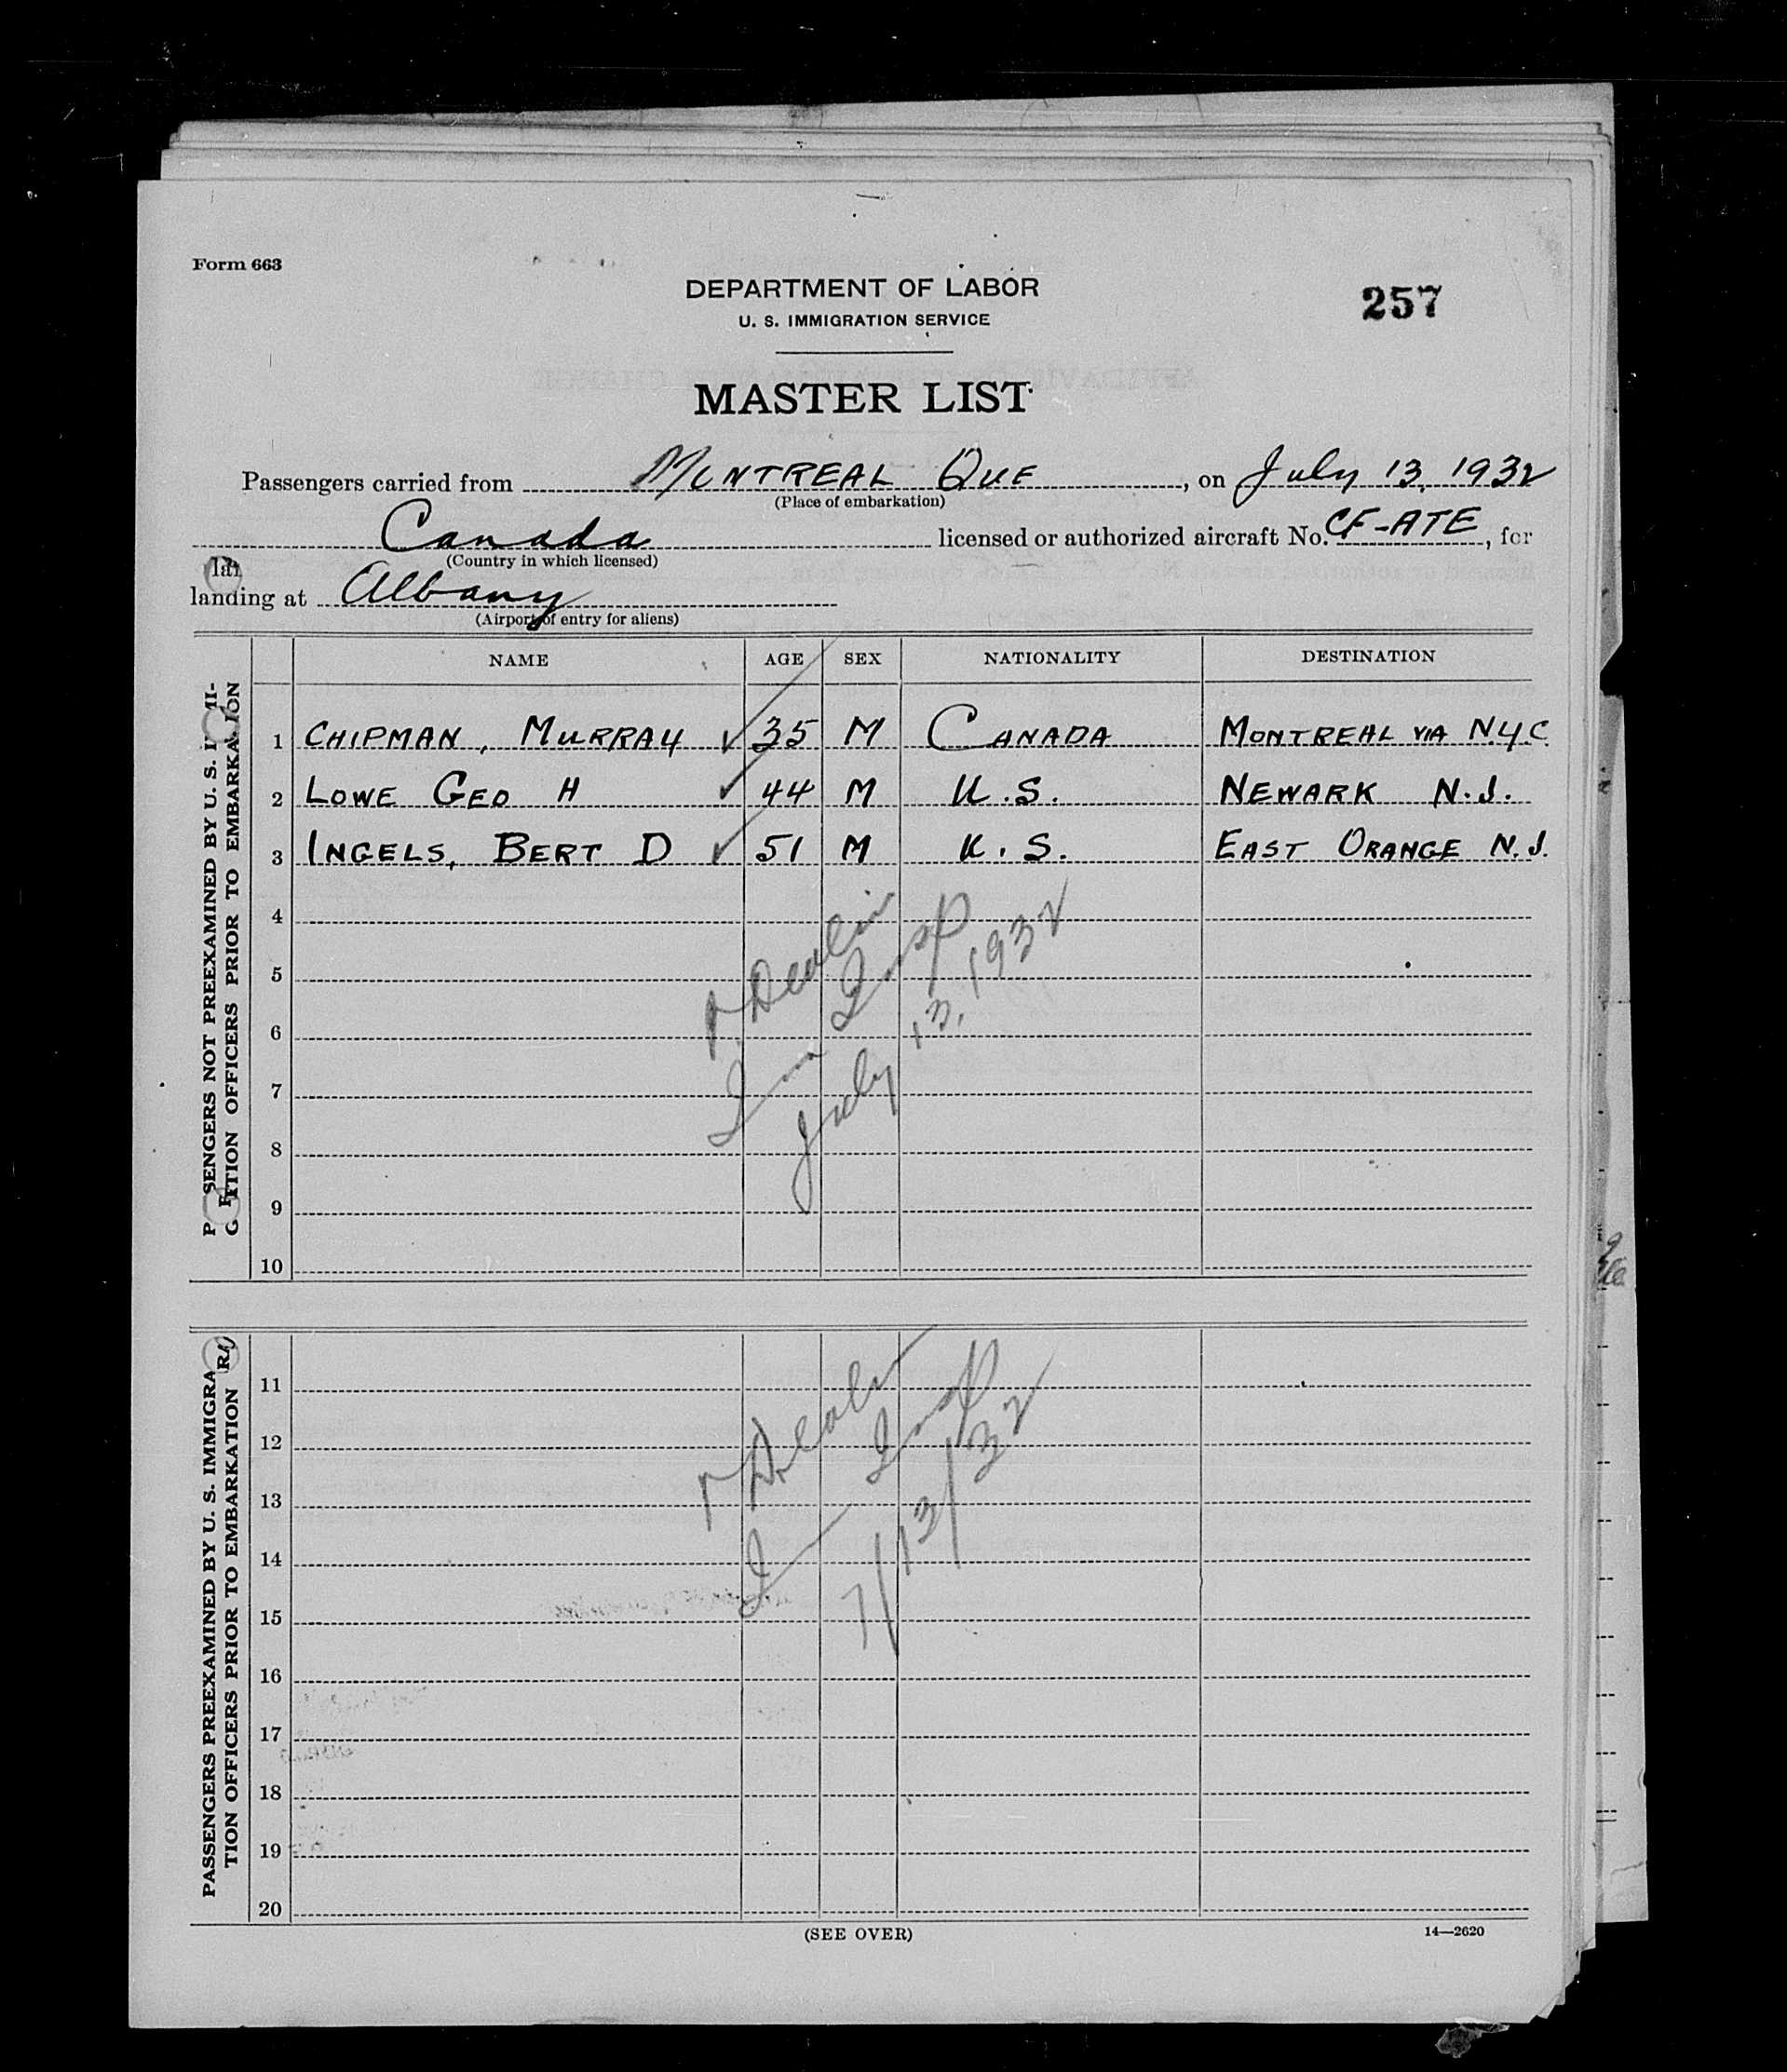 Form 663
DEPARTMENT OF LABOR
U. S. IMMIGRATION SERVICE
257
MASTER LIST
Passengers carried from MONTREAL QUE, on July 13, 1932
(Place of embarkation)
Canada licensed or authorized aircraft No. CF-ATE, for
(Country in which licensed)
landing at Albany
(Airport of entry for aliens)
NAME AGE SEX NATIONALITY DESTINATION
1 CHIPMAN, MURRAY ✓ 35 M CANADA MONTREAL VIA N.Y.C.
2 LOWE GEO H ✓ 44 M U.S. NEWARK N.J.
3 INGELS, BERT D ✓ 51 M U.S. EAST ORANGE N.J.
4
5
6
7
8
9
10
Imm Insp
July 13, 1932
SENGERS NOT PREEXAMINED BY U. S.
TION OFFICERS PRIOR TO EMBARKA ION
11
12
13
14
15
16
17
18
19
20
Insp
7/13/32
PASSENGERS PREEXAMINED BY U. S. IMMIGRA
TION OFFICERS PRIOR TO EMBARKATION
(SEE OVER)
14—2620